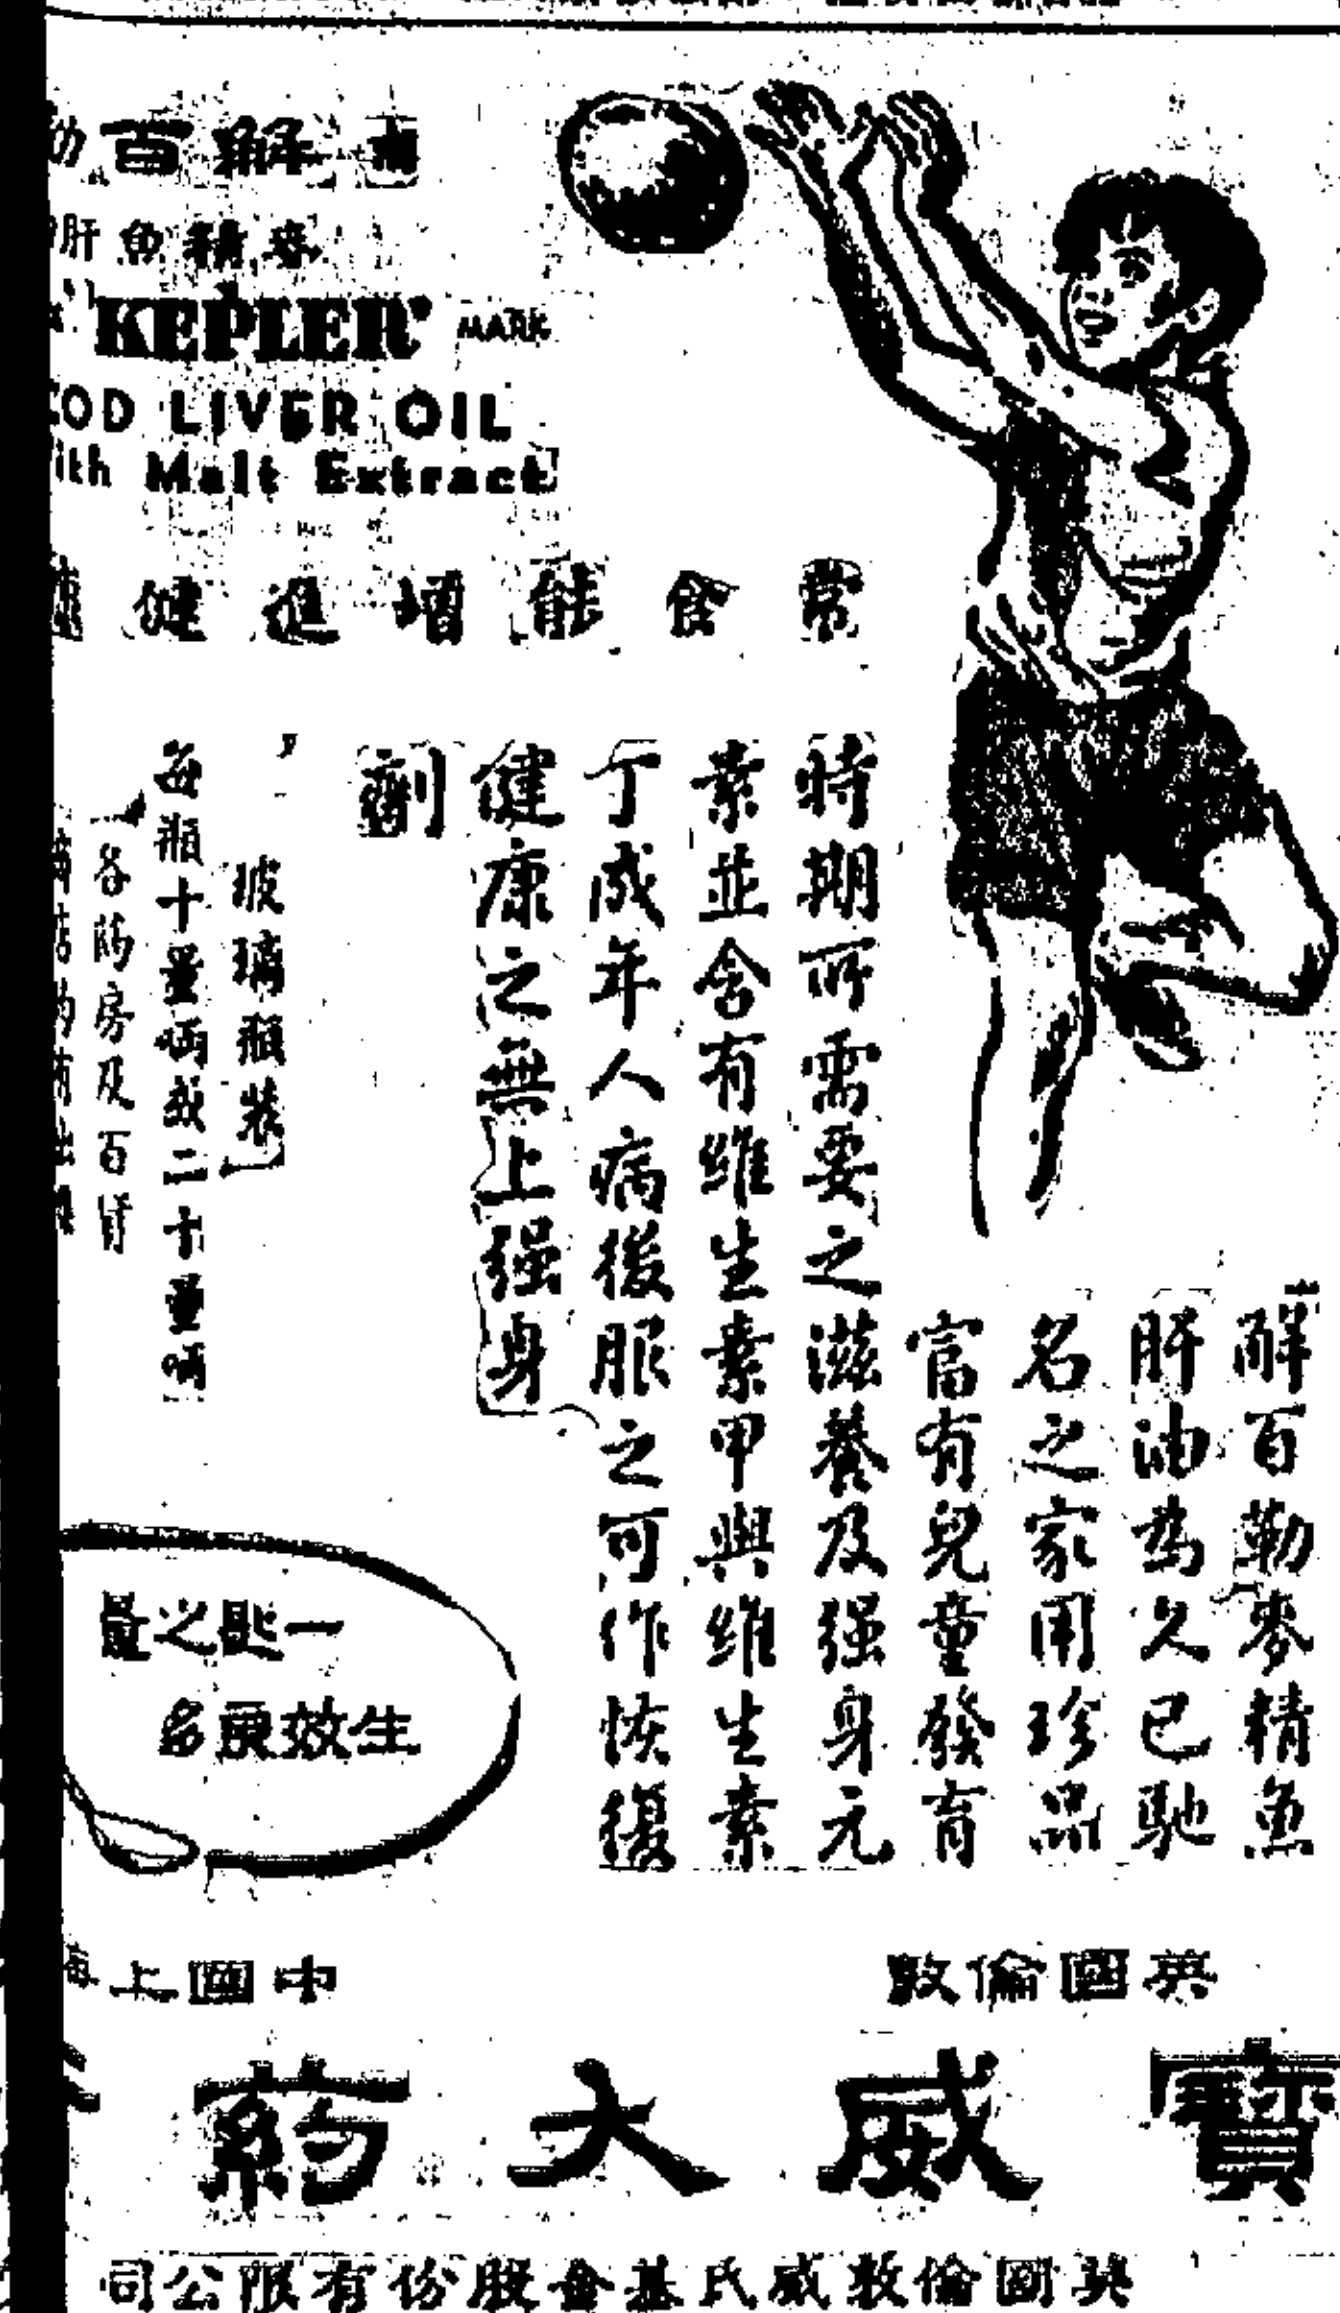 解百勒
麥精魚肝
'KEPLER' MARK
COD LIVER OIL
with Malt Extract
常食能增進健康
解百勒麥精魚
肝油為久已馳
名之家用珍品
富有兒童發育
時期所需要之滋養及强身元
素並含有維生素甲與維生素
丁成年人病後服之可作恢復
健康之無上强身
劑
玻璃瓶裝
每瓶十量啢或二十量啢
各葯房及百貨
一匙之量
生效更多
英國倫敦
中國上海
寶威大葯
英國倫敦威氏基會股份有限公司